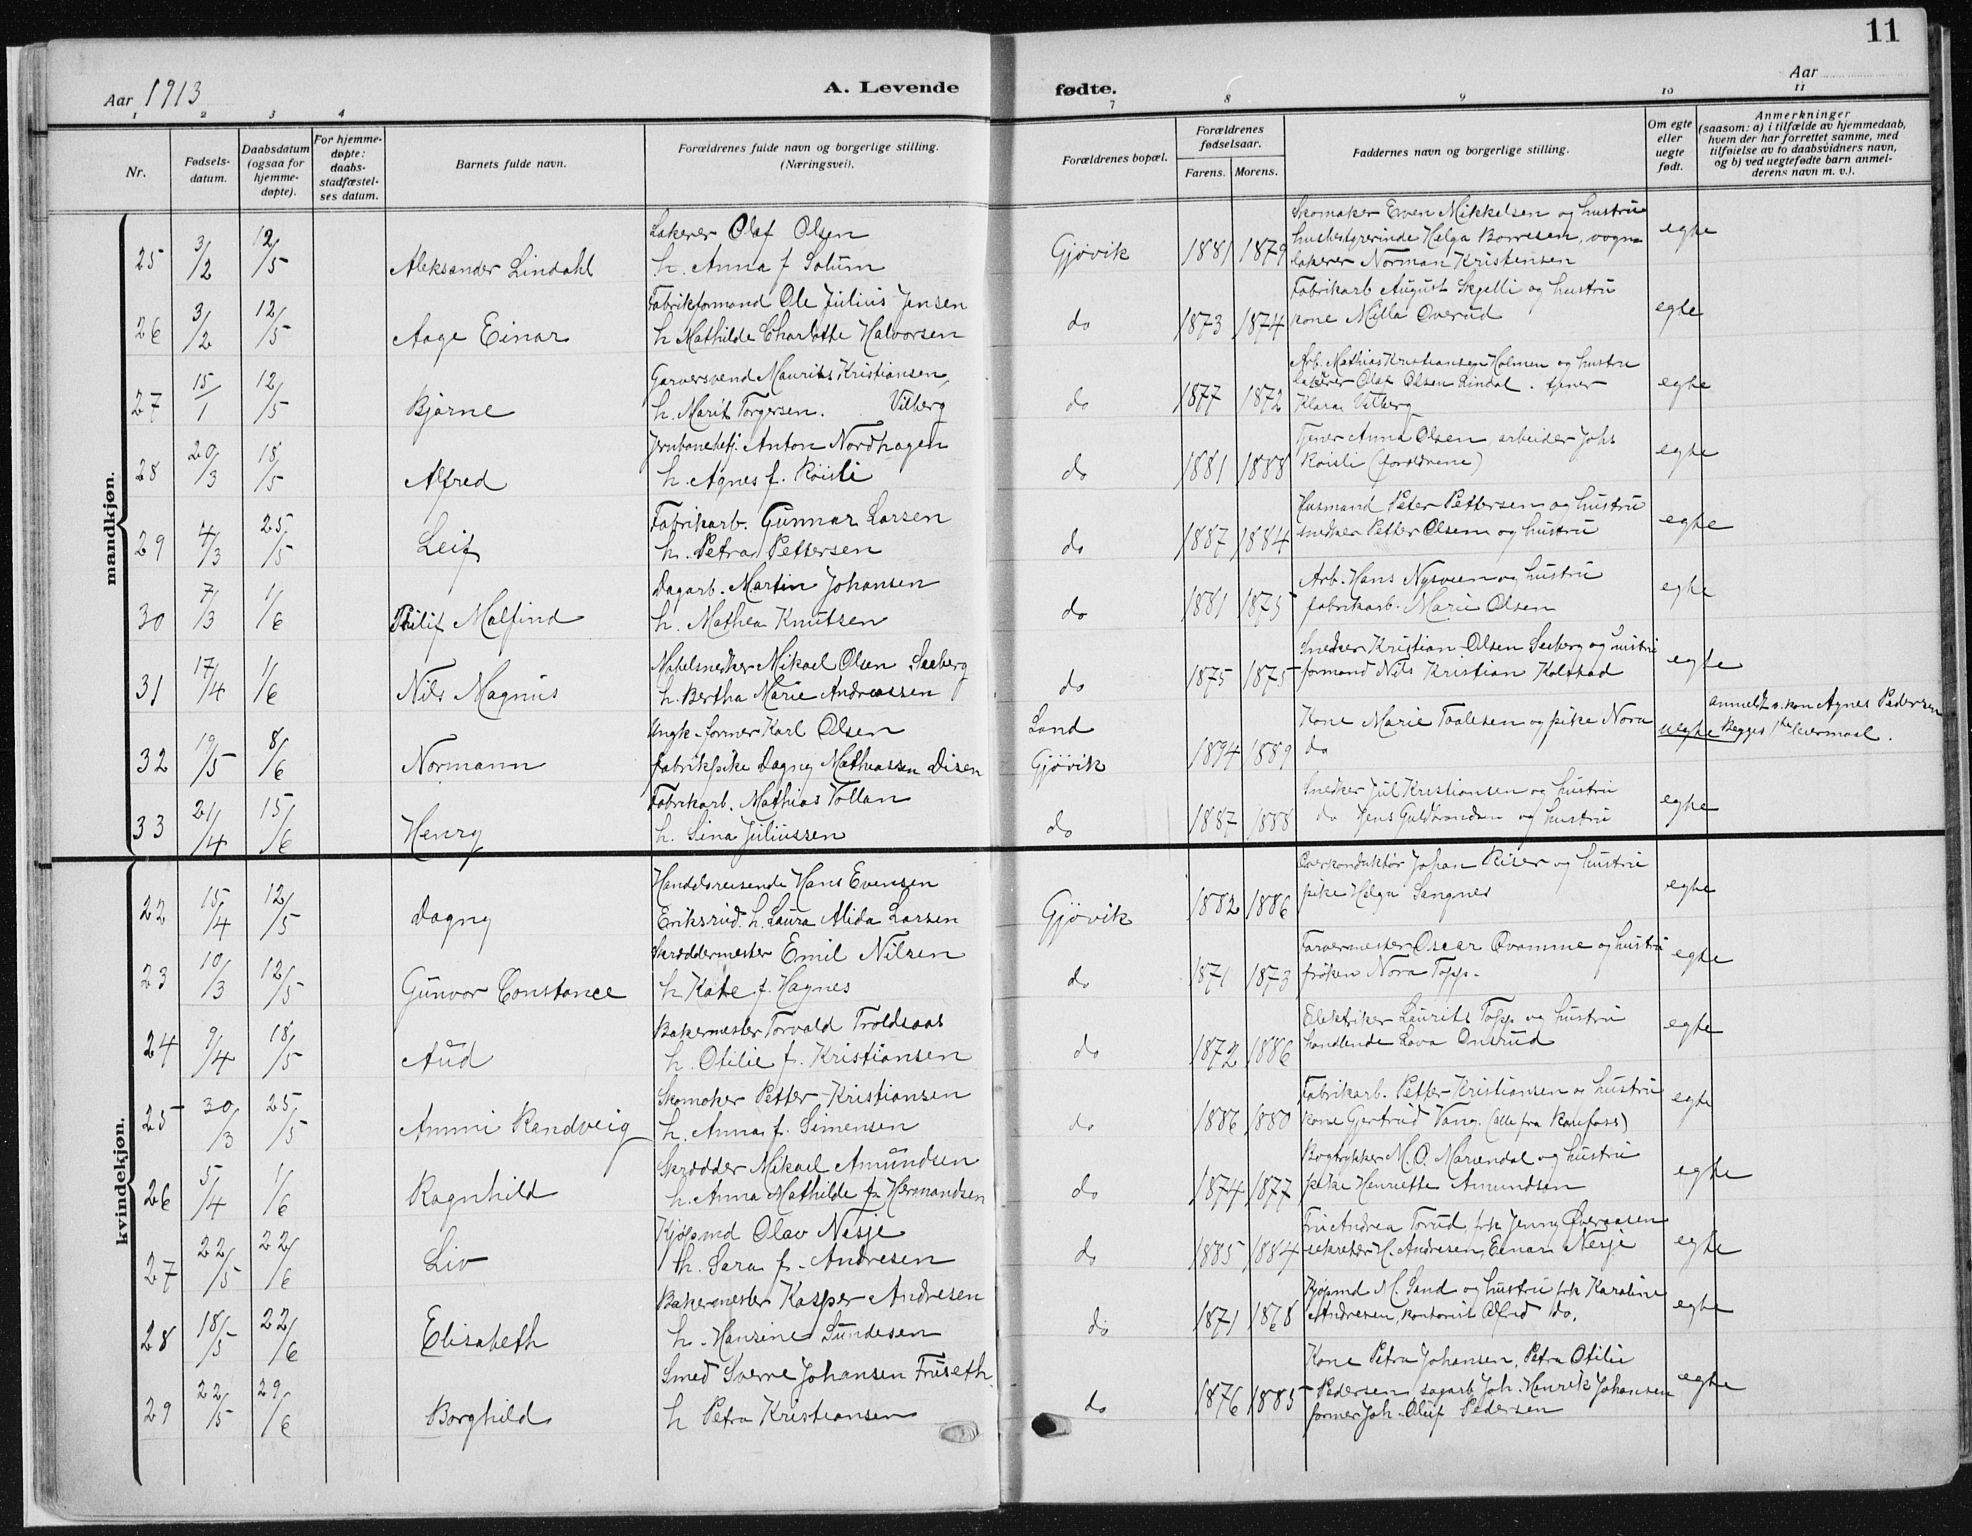 11
Aar 1913
A. Levende fødte.
Aar
1 2 3 4 7 8 9 10 11
Nr.
Fødsels-
datum.
Daabsdatum
(ogsaa for
hjemme-
døpte).
For hjemme-
døpte:
daabs-
stadfæstel-
ses datum.
Barnets fulde navn.
Forældrenes fulde navn og borgerlige stilling.
(Næringsvei).
Forældrenes bopæl.
Forældrenes
fødselsaar.
Farens. Morens.
Faddernes navn og borgerlige stilling.
Om egte
eller
uegte
født.
Anmerkninger
(saasom: a) i tilfælde av hjemmedaab,
hvem der har forrettet samme, med
tilføielse av to daabsvidners navn,
og b) ved uegtefødte barn anmel-
derens navn m. v.).
mandkjøn.
Lakerer Olaf Olsen Skomaker Even Mikkelsen og hustru
25 3/2 12/5 Aleksander Lindahl h. Anna f. Solum Gjøvik 1881 1879 husbestyrerinde Helga Borresen, vogn- egte
lakerer Norman Kristensen
Fabrikformand Ole Julius Jensen Fabrikarb August Skjelli og hustru
26 3/2 12/5 Aage Einar h Mathilde Charlotte Halvorsen do 1873 1874 kone Milla Overud egte
Garversvend Maurits Kristiansen, Arb. Mathias Kristiansen Holmen og hustru
27 15/1 12/5 Bjarne h. Marit Torgersen. Vitberg do 1877 1872 lakerer Olaf Olsen Lindal. tjener egte
Klara Vitberg
Jernbanebetj. Anton Nordhagen Tjener Anna Olsen arbeider Johs
28 20/3 18/5 Alfred h. Agnes f. Köisli do 1881 1888 Köisli (forældrene) egte
Fabrikarb. Gunnar Larsen Husmand Peter Pettersen og hustru
29 4/3 25/5 Leif h. Petra Pettersen do 1887 1884 snedker Petter Olsen og hustru egte
Dagarb. Martin Johansen Arb. Hans Nysveen og hustru
30 7/3 1/6 Thilif Malfind h. Mathea Knutsen do 1881 1875 fabrikarb. Marie Olsen egte
Møbelsnedker Mikael Olsen Seeberg Snedker Kristian Olsen Seeberg og hustru
31 17/4 1/6 Nils Magnus h. Bertha Marie Andreassen do 1875 1875 formand Nils Kristian Kolstad egte
Ungk. former Karl Olsen Land Kone Marie Toalesen og pike Nora anmeldt av kon Agnes Pedersen
32 19/5 8/6 Normann fabrikpike Dagny Mathiassen Disen Gjøvik 1894 1889 do uegte Begges 1ste leiermaal.
Fabrikarb. Mathias Tollan Snedker Jul Kristiansen og hustru
33 21/4 15/6 Henry h. Lina Juliussen do 1887 1888 do Jens Guldbrandsen og hustru egte
kvindekjøn.
Handelsreisende Hans Evensen Overkonduktør Johan Riser og hustru
22 15/4 12/5 Dagny Eriksrud. h. Laura Alida Larsen Gjøvik 1882 1886 pike Helga Sangnes egte
Skræddermester Emil Nilsen Farvermester Oscar Qvamme og hustru
23 10/3 12/5 Gunvor Constance h Kate f. Hagnes do 1871 1873 frøken Nora Topp. egte
Bakermester Torvald Troldsaas Elektriker Laurits Topp og hustru
24 9/4 18/5 Aud h. Otilie f. Kristiansen do 1872 1886 handlende Lova Onsrud egte
Skomaker Petter Kristiansen Fabrikarb. Petter Kristiansen og hustru
25 30/3 25/5 Ammi Randveig h. Anna f. Simensen do 1886 1880 kone Gjertrud Vang. (alle fra Raufoss) egte
Skrædder Mikael Amundsen Bogtrykker M. O. Mariendal og hustru
26 5/4 1/6 Ragnhild h. Anna Mathilde f. Hermandsen do 1874 1877 pike Henriette Amundsen egte
Kjøpmd Olav Nesje Frue Andrea Torud, frk Jenny Øveraasen
27 22/5 22/6 Liv h. Sara f. Andresen do 1885 1884 sekretær H. Andresen, Einar Nesje egte
Bakermester Kasper Andresen Kjøpmd M. Sand og hustru frk Karoline
28 18/5 22/6 Elisabeth h. Hansine Sundesen do 1871 1868 Andresen, kontorist Alfred do. egte
Smed Sverre Johansen Fruseth Kone Petra Johansen, Petra Otilie
29 22/5 29/6 Borghild h Petra Kristiansen do 1876 1885 Pedersen sagarb Joh. Henrik Johansen egte
former Joh. Oluf Pedersen